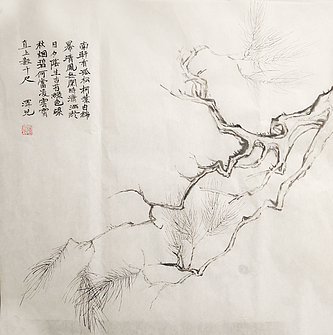 南軒有孤松柯葉自綿
冪清風無閑時瀟洒終
日夕陰生古苔綠色染
秋烟碧何當凌雲霄
直上數千尺